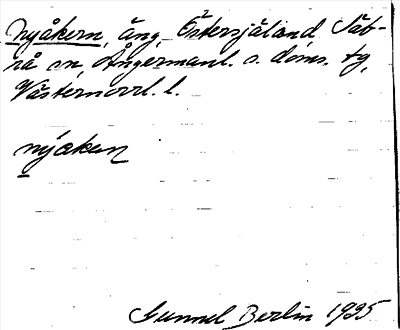 Nyåkern, äng, Östersjäland, Säb-
rå sn, Ångermanl. s. doms. tg,
Västernorrl. l.
nýaken
Gunnel Berlin 1935